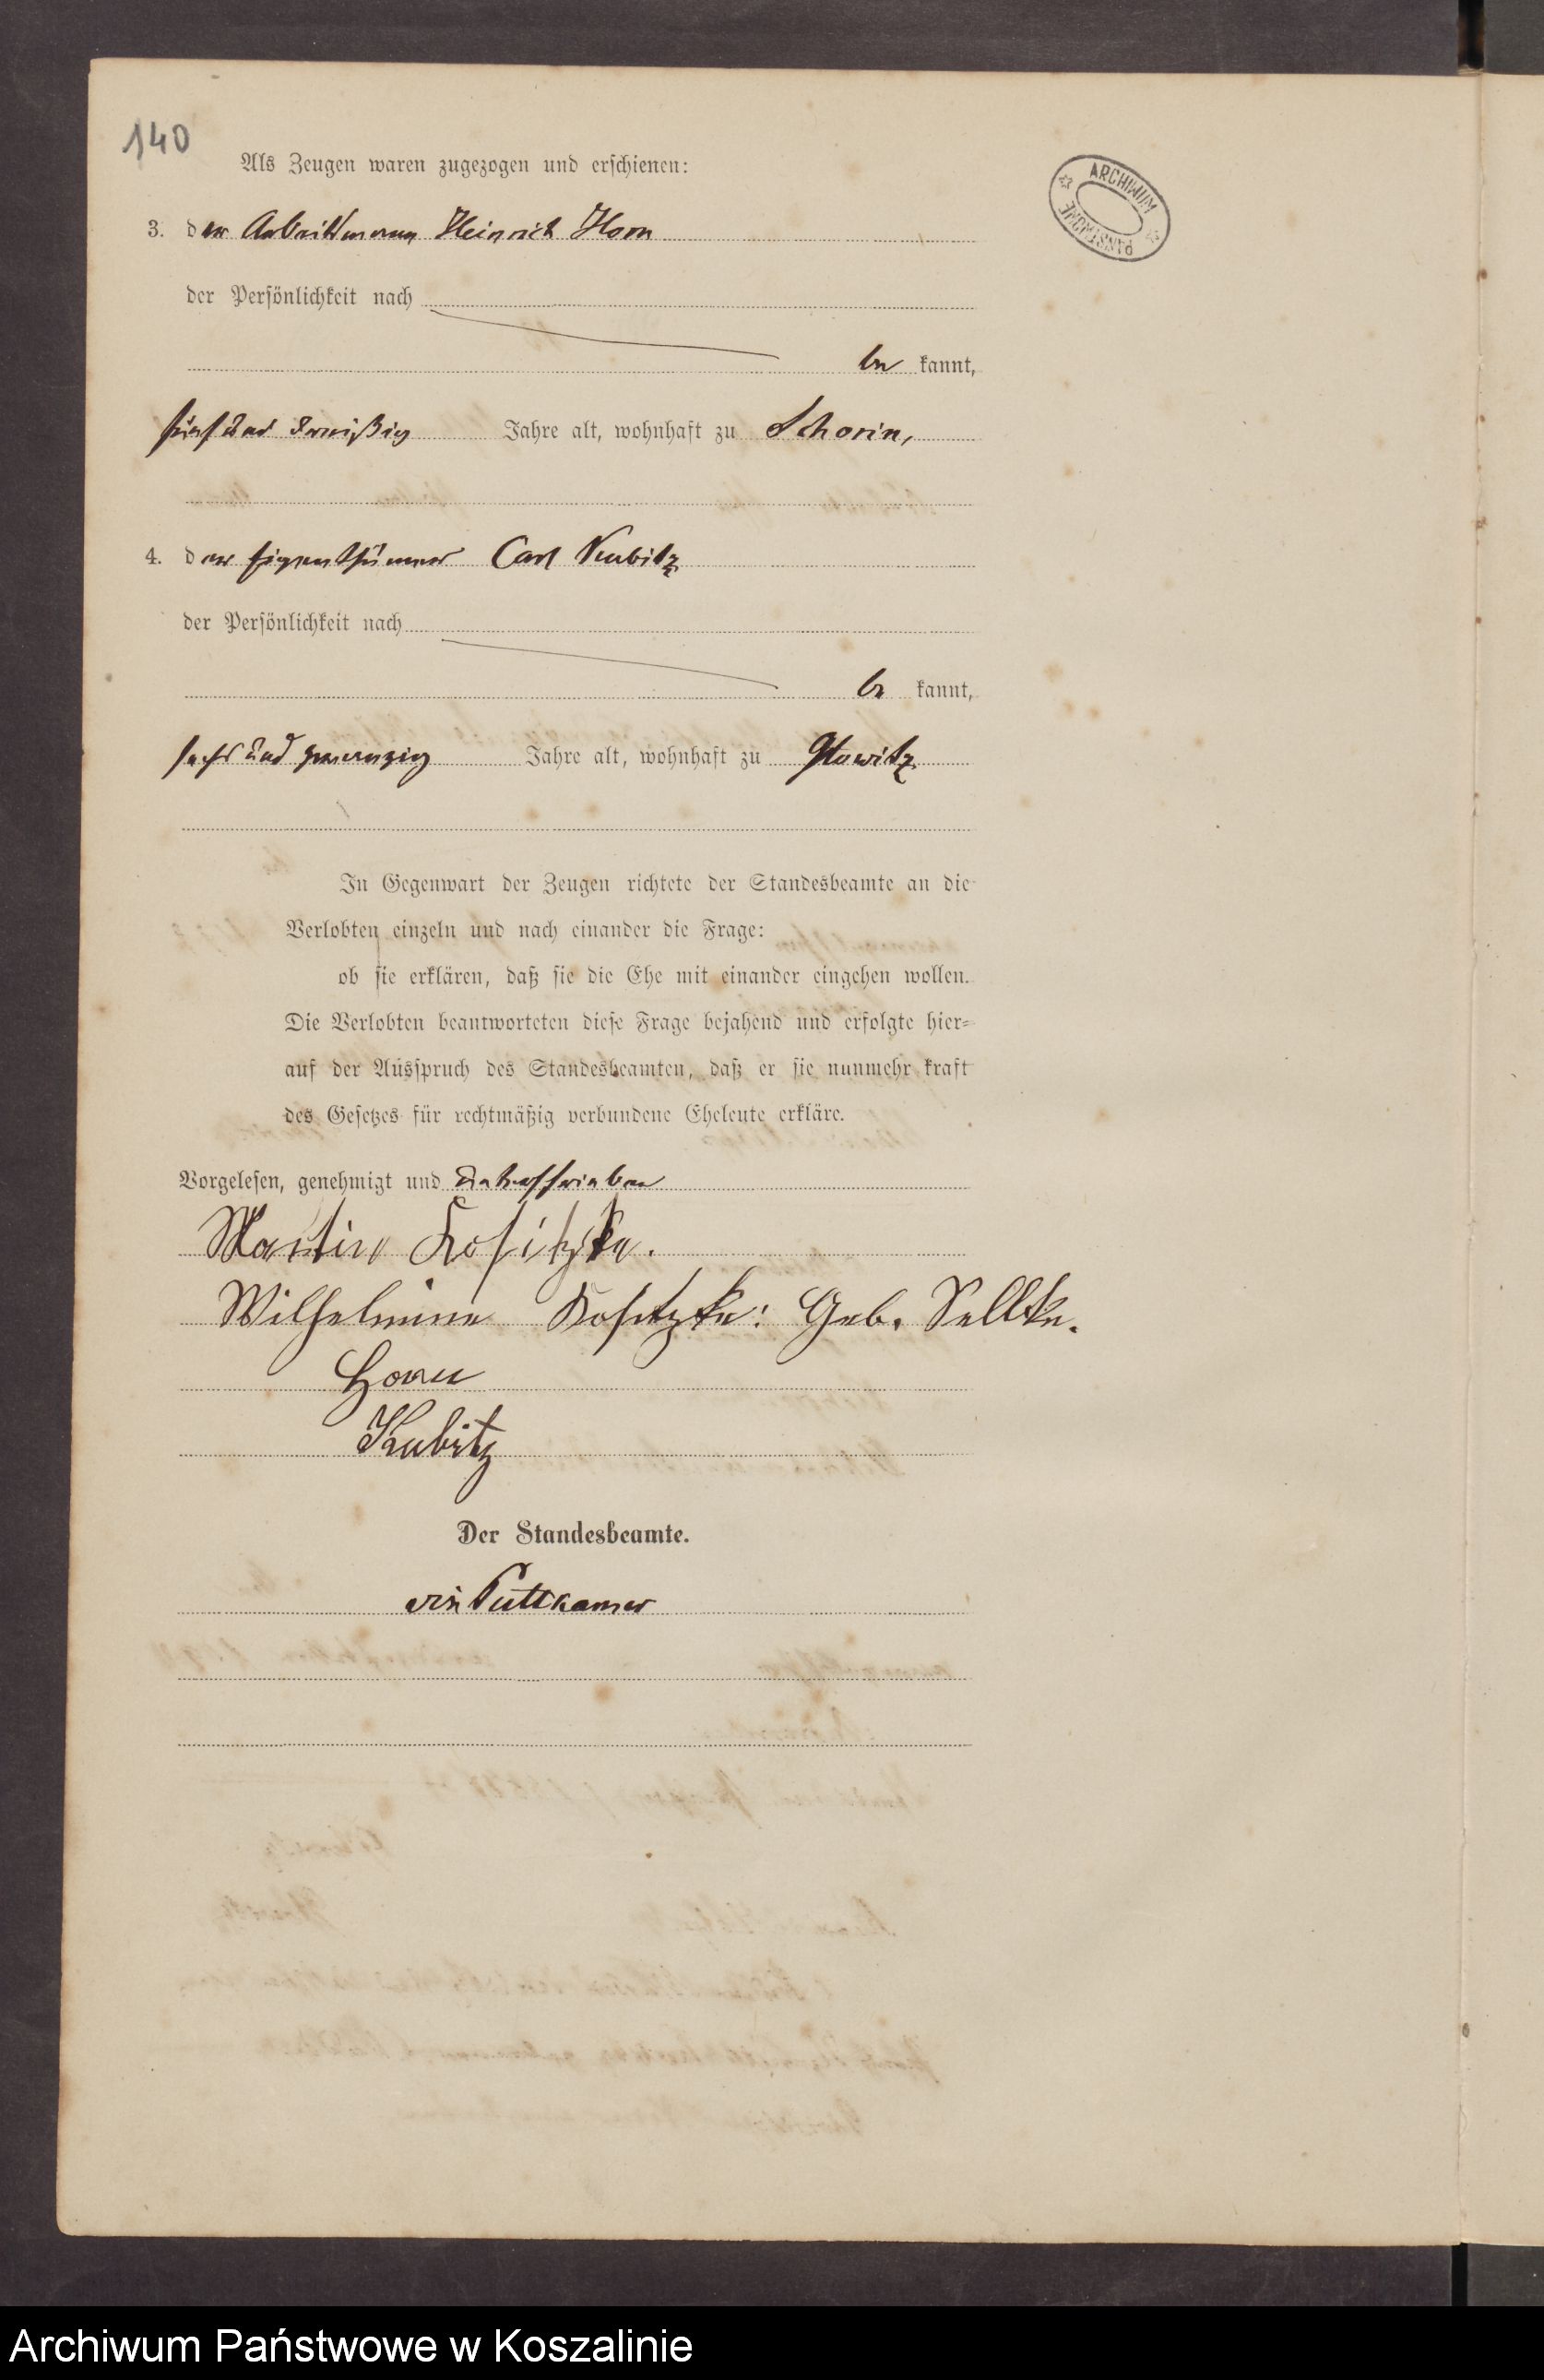 140
Als Zeugen waren zugezogen und erschienen:
3. der Arbeitsmann Heinrich Horn
der Persönlichkeit nach
be kannt,
fünf und dreißig Jahre alt, wohnhaft zu Schorin,
4. der Eigenthümer Carl Kubitz
der Persönlichkeit nach
be kannt,
sechs und zwanzig Jahre alt, wohnhaft zu Glowitz
In Gegenwart der Zeugen richtete der Standesbeamte an die
Verlobten einzeln und nach einander die Frage:
ob sie erklären, daß sie die Ehe mit einander eingehen wollen.
Die Verlobten beantworteten diese Frage bejahend und erfolgte hier=
auf der Ausspruch des Standesbeamten, daß er sie nunmehr kraft
des Gesetzes für rechtmäßig verbundene Eheleute erkläre.
Vorgelesen, genehmigt und unterschrieben
Martin Kositzke.
Wilhelmine Kositzke: Geb. Selltke.
Horn
Kubitz
Der Standesbeamte.
von Puttkamer
ARCHIWUM PAŃSTWOWE
Archiwum Państwowe w Koszalinie